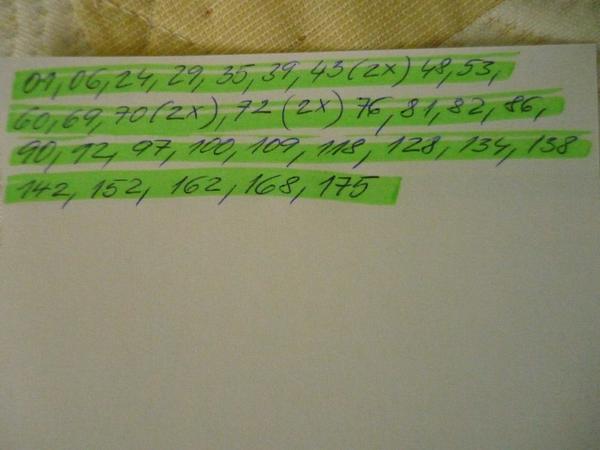 01, 06, 24, 29, 35, 39, 43 (2x) 48, 53,
60, 69, 70 (2x), 72 (2x) 76, 81, 82, 86,
90, 92, 97, 100, 109, 118, 128, 134, 138
142, 152, 162, 168, 175